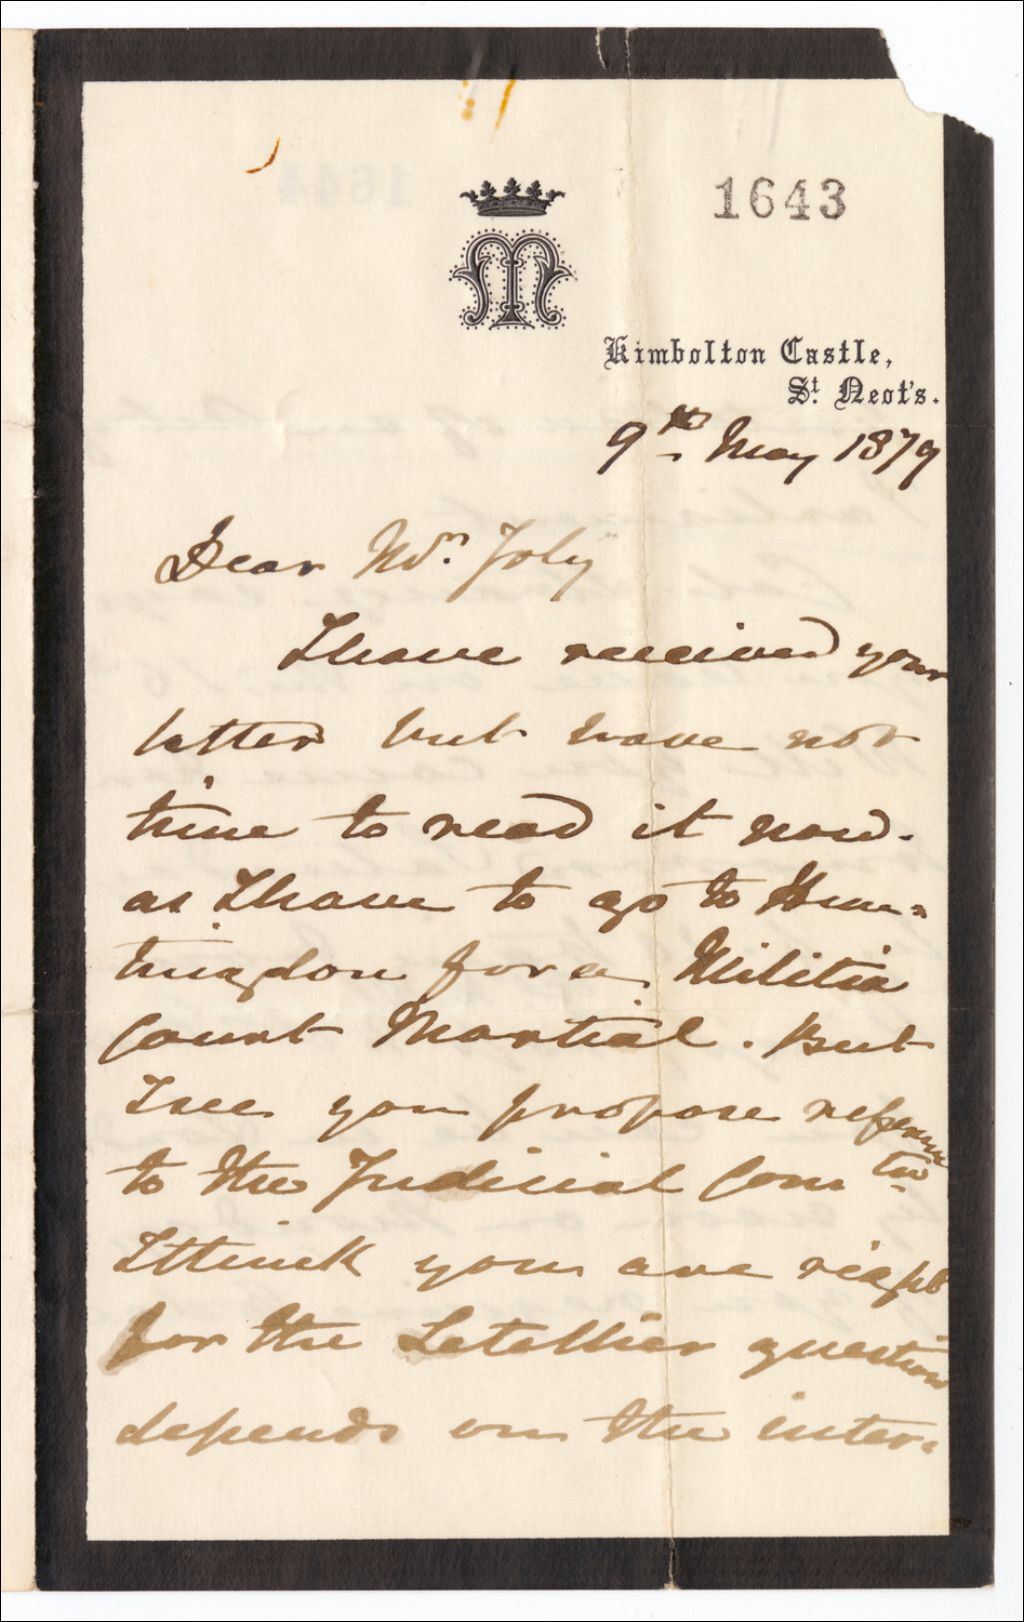 1643
M
Kimbolton Castle,
St. Neot's.
9th May 1879
Dear Mr. Joly
I have received your
letter but have not
time to read it now.
as I have to go to Hun=
tingdon for a Militia
Court Martial. But
I see you propose reference
to the Judicial Comtee
I think you are right
for the Letellier question
depends on the inter=